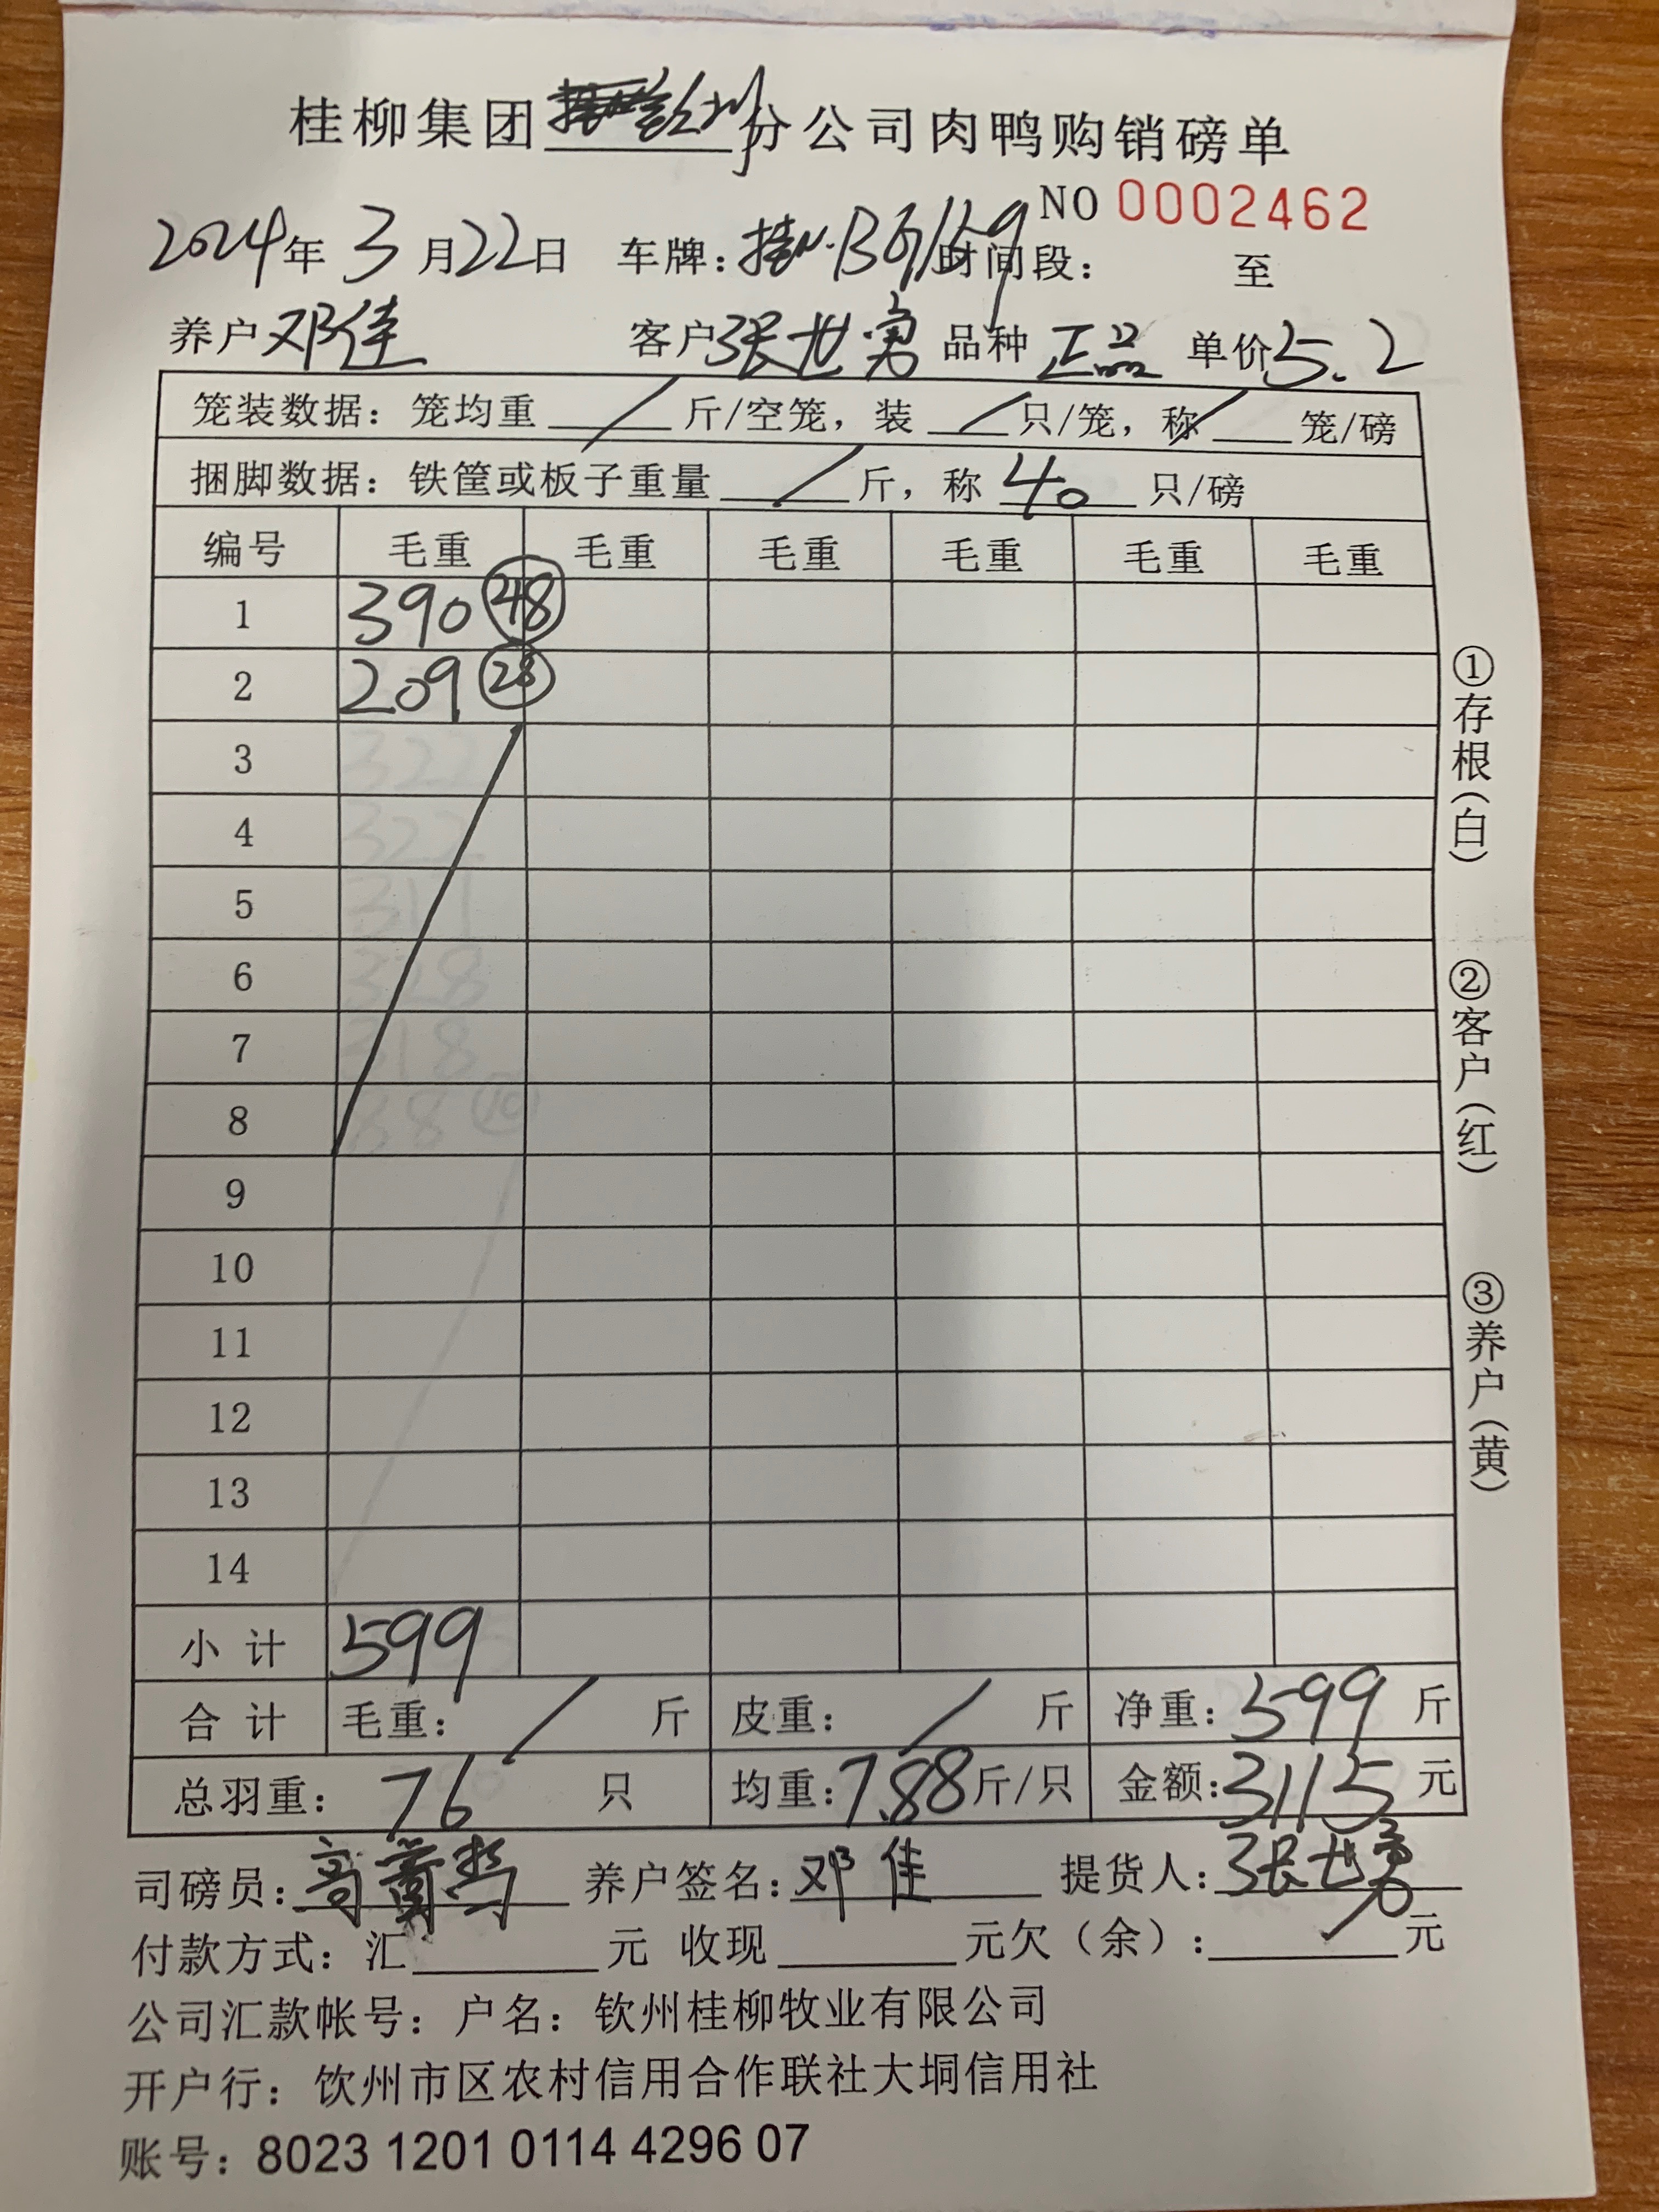 桂柳集团 分公司肉鸭购销磅单
NO 0002462
2024年 3月22日 车牌: 时间段: 至
养户邓佳 客户张世勇 品种 正品 单价5.2
笼装数据: 笼均重 / 斤/空笼, 装 / 只/笼, 称 / 笼/磅
捆脚数据: 铁筐或板子重量 / 斤, 称 40 只/磅
编号 毛重 毛重 毛重 毛重 毛重 毛重
1 390 48
2 209 28
3
4
5
6
7
8
9
10
11
12
13
14
小 计 599
合 计 毛重: / 斤 皮重: / 斤 净重: 599 斤
总羽重: 76 只 均重: 7.88斤/只 金额: 3115元
司磅员: 养户签名: 邓佳 提货人: 张世勇
付款方式: 汇 元 收现 元欠(余): 元
公司汇款帐号: 户名: 钦州桂柳牧业有限公司
开户行: 饮州市区农村信用合作联社大垌信用社
账号: 8023 1201 0114 4296 07
①存根(白)
②客户(红)
③养户(黄)